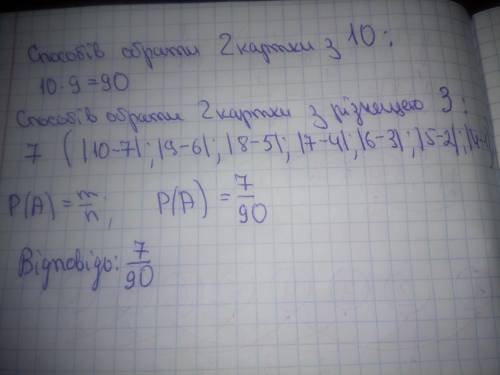 Способів обрати 2 картки з 10:
10·9=90
Способів обрати 2 картки з різницею 3:
7 (|10-7|; |9-6|; |8-5|; |7-4|; |6-3|; |5-2|; |4-
P(A) = m/n; P(A) = 7/90
Відповідь: 7/90